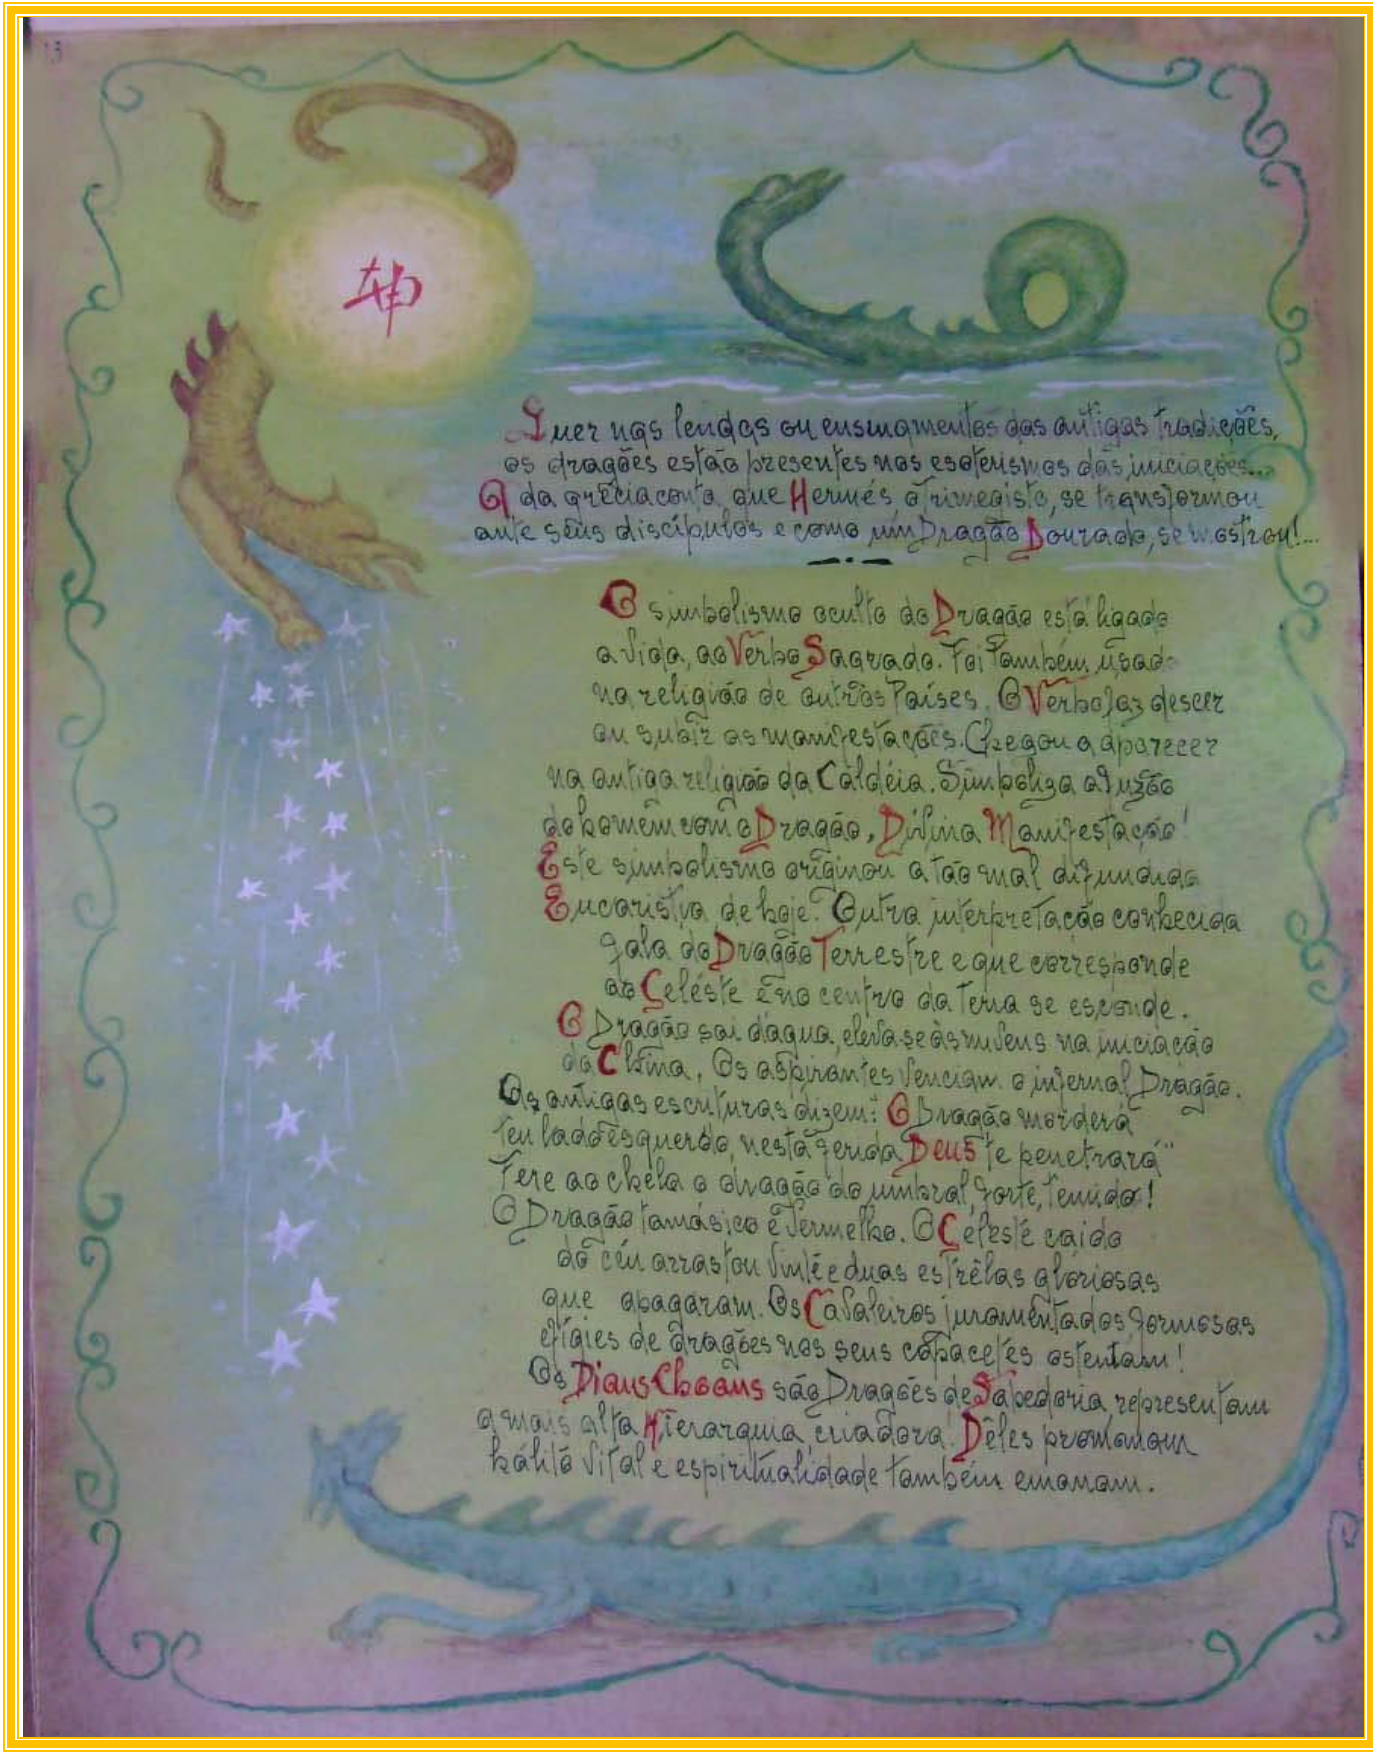 13
Quer nas lendas ou ensinamentos das antigas tradições,
os dragões estão presentes nos esoterismos das iniciações...
A da grécia conta que Hermés o Trimegisto, se transformou
ante seus discípulos e como um Dragão Dourado, se mostrou!...
O simbolismo oculto do Dragão está ligado
a vida, ao Verbo Sagrado. Foi também usado
na religião de outros Países. O Verbo faz descer
ou subir as manifestações. Chegou a aparecer
na antiga religião da Caldéia. Simboliza a fusão
do homem com o Dragão, Divina Manifestação!
Este simbolismo originou a tão mal difundida
Eucaristia de hoje. Outra interpretação conhecida
fala do Dragão Terrestre e que corresponde
ao Celéste e no centro da Terra se esconde.
O Dragão sai d'agua, eleva-se às nuvens na iniciação
da China. Os aspirantes venciam o infernal Dragão.
As antigas escrituras dizem: "O Dragão morderá
teu lado esquerdo, nesta ferida Deus te penetrará"
Fere ao chela o dragão do umbral, forte, temido!
O Dragão tamásico é Vermelho. O Céleste caido
do céu arrastou vinte e duas estrêlas gloriosas
que apagaram. Os Cavaleiros juramentados, formosas
efígies de dragões nos seus capacetes ostentam!
Os Dians Choans são Dragões de Sabedoria representam
a mais alta Hierarquia criadora. Dêles promanam
hálito Vital e espiritualidade também emanam.